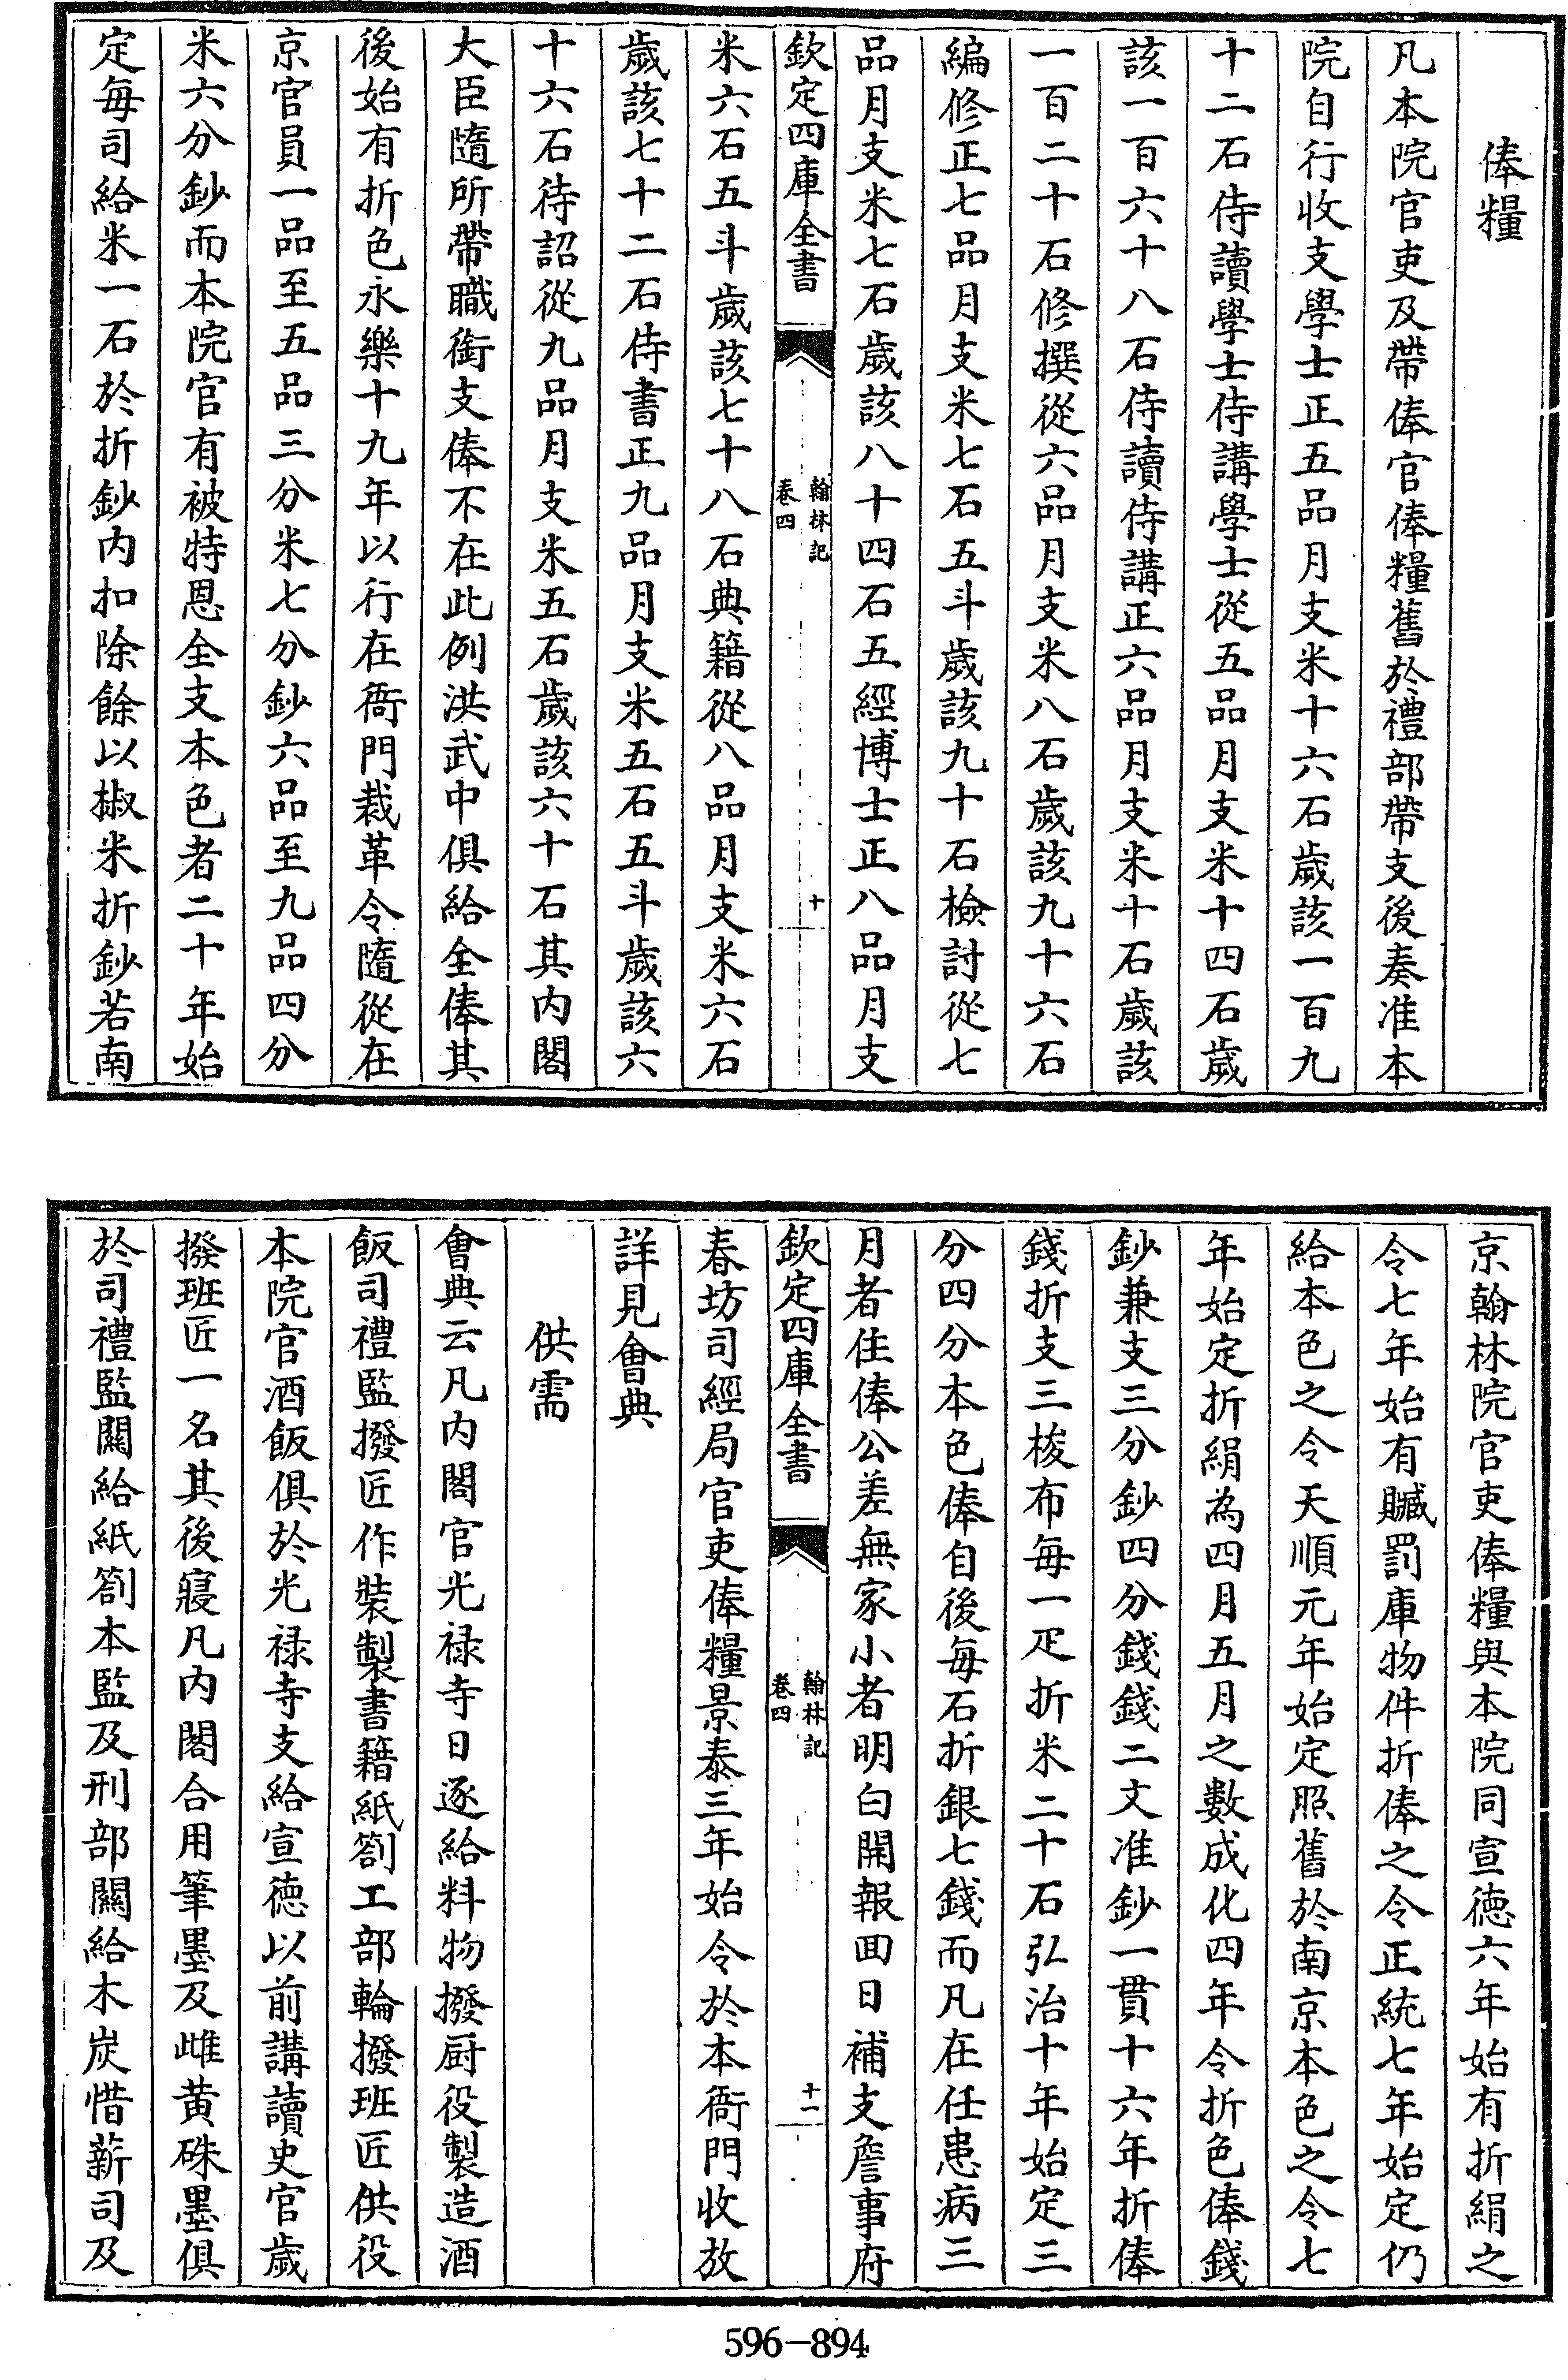 俸糧
凡本院官吏及帶俸官俸糧舊於禮部帶支後奏准本
院自行收支學士正五品月支米十六石歲該一百九
十二石侍讀學士侍講學士從五品月支米十四石歲
該一百六十八石侍讀侍講正六品月支米十石歲該
一百二十石修撰從六品月支米八石歲該九十六石
編修正七品月支米七石五斗歲該九十石檢討從七
品月支米七石歲該八十四石五經博士正八品月支
欽定四庫全書
翰林記
卷四
十
米六石五斗歲該七十八石典籍從八品月支米六石
歲該七十二石侍書正九品月支米五石五斗歲該六
十六石待詔從九品月支米五石歲該六十石其内閣
大臣隨所帶職銜支俸不在此例洪武中俱給全俸其
後始有折色永樂十九年以行在衙門裁革令隨從在
京官員一品至五品三分米七分鈔六品至九品四分
米六分鈔而本院官有被特恩全支本色者二十年始
定每司給米一石於折鈔内扣除餘以椒米折鈔若南
京翰林院官吏俸糧與本院同宣徳六年始有折絹之
令七年始有贓罰庫物件折俸之令正統七年始定仍
給本色之令天順元年始定照舊於南京本色之令七
年始定折絹為四月五月之數成化四年令折色俸錢
鈔兼支三分鈔四分錢錢二文准鈔一貫十六年折俸
錢折支三梭布每一疋折米二十石弘治十年始定三
分四分本色俸自後每石折銀七錢而凡在任患病三
月者住俸公差無家小者明白開報回日補支詹事府
欽定四庫全書
翰林記
卷四
十一
春坊司經局官吏俸糧景泰三年始令於本衙門收放
詳見會典
供需
會典云凡内閣官光禄寺日逐給料物撥厨役製造酒
飯司禮監撥匠作裝製書籍紙劄工部輪撥班匠供役
本院官酒飯俱於光禄寺支給宣徳以前講讀史官歲
撥班匠一名其後寢凡内閣合用筆墨及雌黄硃墨俱
於司禮監關給紙劄本監及刑部關給木炭惜薪司及
596-894